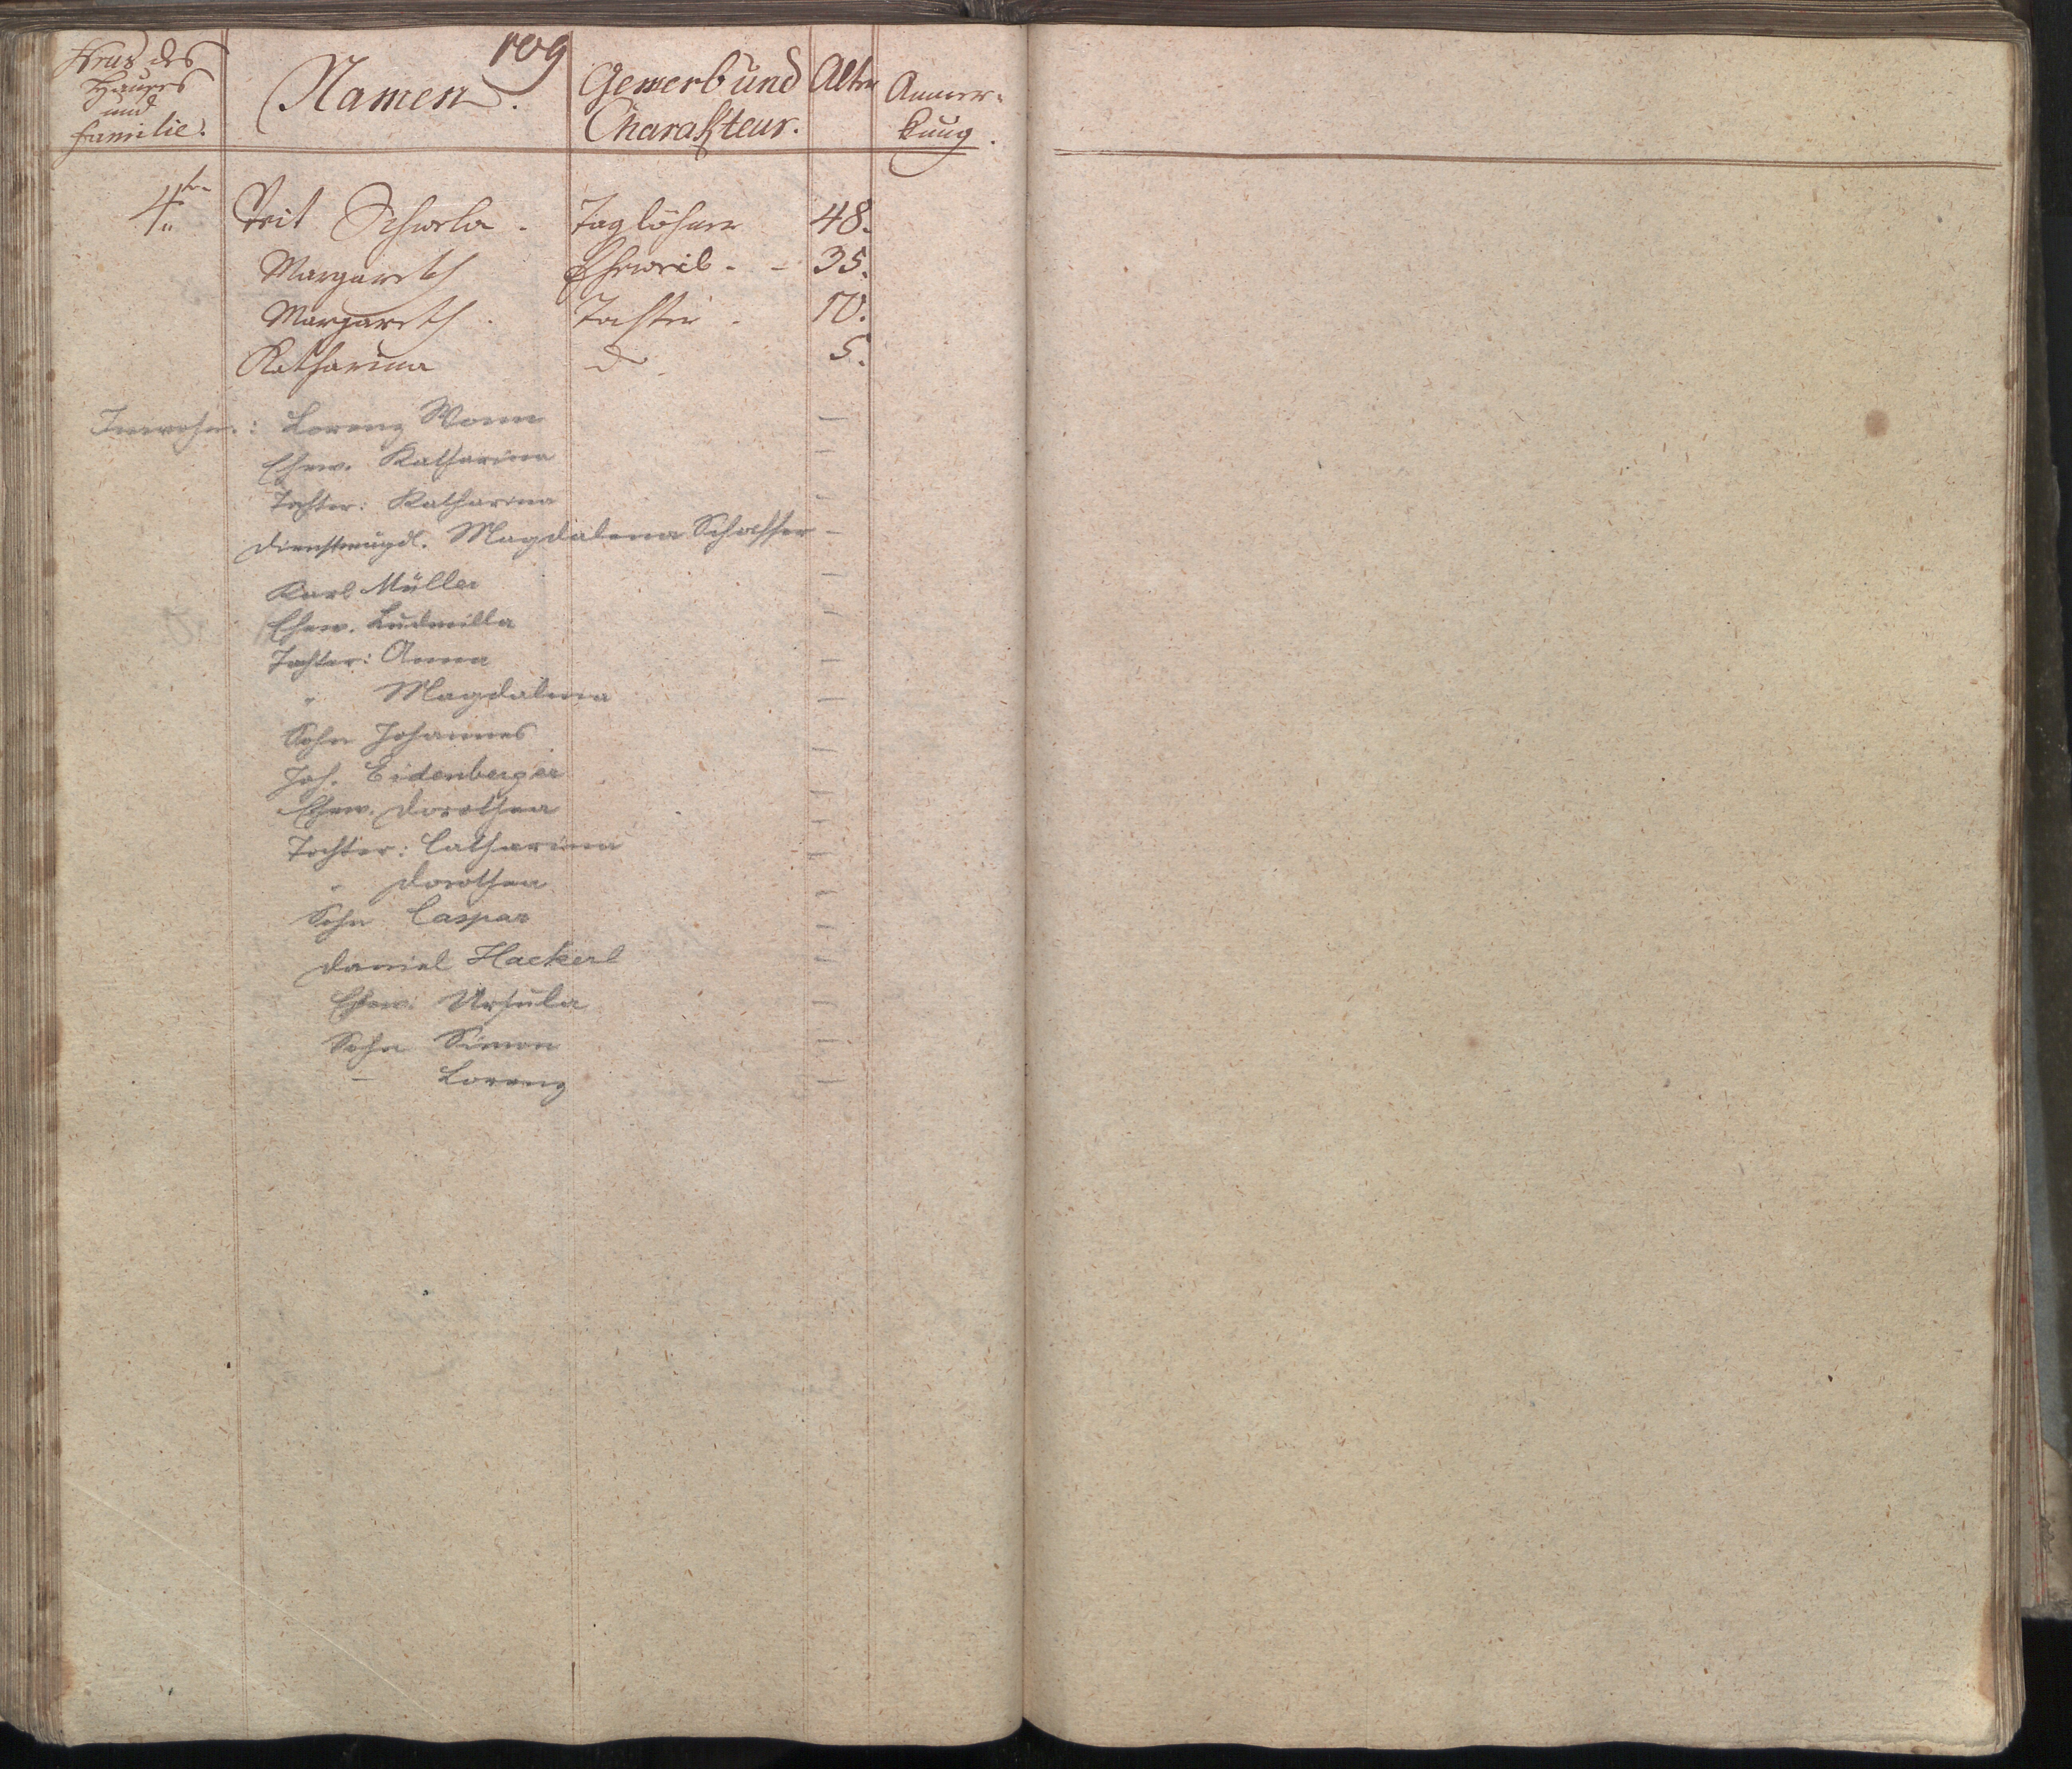 109
Nrus des Hauses und Familie. Namen. Gewerb und Charakteur. Alter Anmerkung.
4. Veit Taglöhner 48.
Margareth Eheweib - - 35.
Margareth. Tochter. 10.
Katharina do 5.
Inwohn.: Lorenz Wonn —
Ehew. Katharina —
Tochter: Katharina -
Dienstmagdl. Magdalena Schaffer -
Karl Müller —
Ehew. Ludmilla —
Tochter: Anna —
" Magdalena —
Sohn Johannes —
Joh. Eidenberger —
Ehew. Dorothea —
Tochter: Catharina —
" Dorothea —
Sohn Caspar —
Daniel Hackerl —
Ehew: Ursula —
Sohn Simon —
— Lorenz —